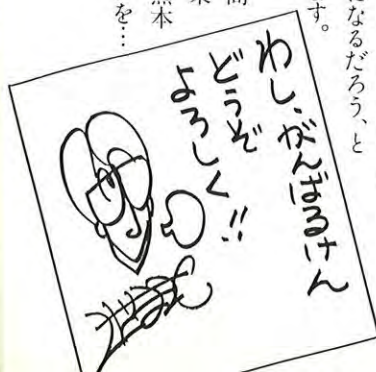 になるだろう、と
す。
本
を…
わし、がんばるけん
どうぞ
よろしく!!